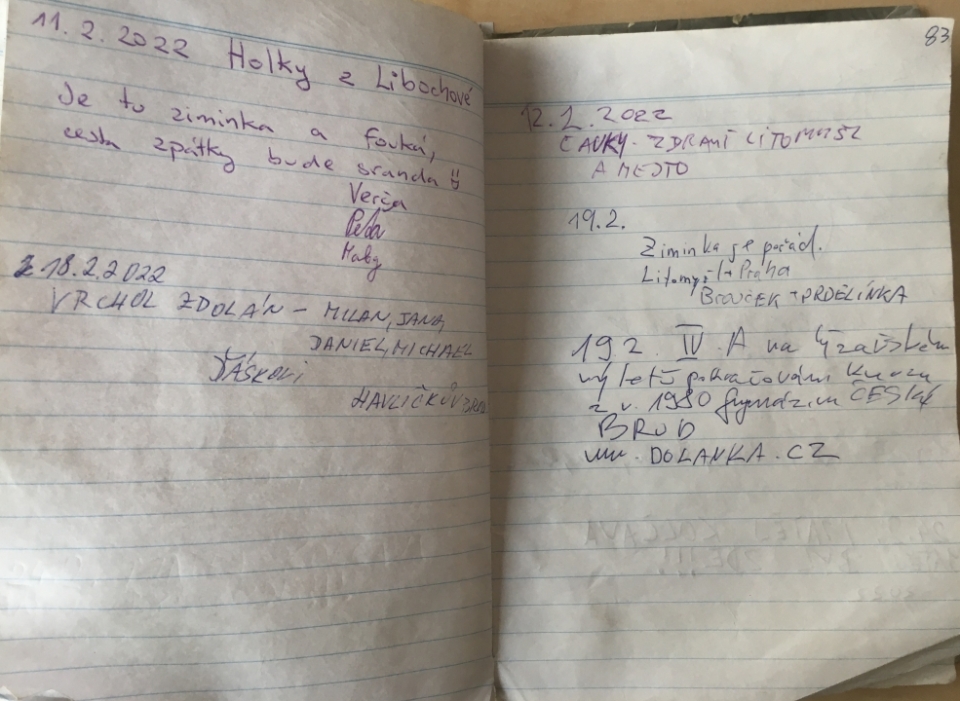 11.2.2022 Holky z Libochové
Je tu ziminka a fouká,
cesta zpátky bude sranda
Verča
Peťa
Haby
18.2.2022
VRCHOL ZDOLÁN - MILAN, JANA,
DANIEL, MICHAEL
ŤÁSKOVI
HAVLÍČKŮV BROD
83
12.2.2022
ČAVKY - ZDRAVÍ LITOMYSL
A MESTO
19.2.
Ziminka je pořád.
Litomyšl + Praha
BROUČEK + PRDELÍNKA
19.2. IV. A na lyžařském
výletě pokračování kurzu
z r. 1980 gymnázium ČESKÝ
BROD
www.DOLANKA.CZ